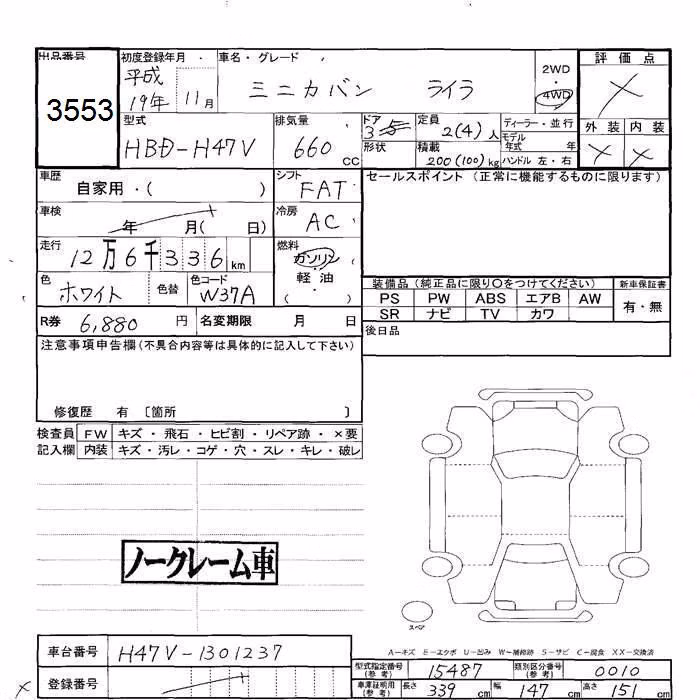 出品番号 初度登録年月 ・ 車名・グレード 評価点
3553 平成19年11月 ミニカバン ライラ 2WD ・ 4WD ×
型式 排気量 ドア 定員 ディーラー・並行 外装 内装
HBD-H47V 660cc 3 5 2(4)人 モデル年式 年 × ×
形状 積載 200(100)kg ハンドル 左・右
車歴 自家用・( ) シフト FAT セールスポイント (正常に機能するものに限ります)
車検 年 月( 日) 冷房 AC
走行 12万6千336km 燃料 ガソリン
軽油
( )
色 ホワイト 色替 色コード W37A 装備品 (純正品に限り○をつけてください) 新車保証書
PS PW ABS エアB AW 有・無
R券 6,880円 名変期限 月 日 SR ナビ TV カワ
後日品
注意事項申告欄(不具合内容等は具体的に記入して下さい)
修復歴 有 〔箇所 〕
検査員 FW キズ・飛石・ヒビ割・リペア跡・×要
記入欄 内装 キズ・汚レ・コゲ・穴・スレ・キレ・破レ
ノークレーム車
スペア
A-キズ E-エクボ U-凹み W-補修跡 S-サビ C-腐食 XX-交換済
車台番号 H47V-1301237 型式指定番号(参考) 15487 類別区分番号(参考) 0010
× 登録番号 車庫証明用(参考) 長さ 339cm 幅 147cm 高さ 151cm